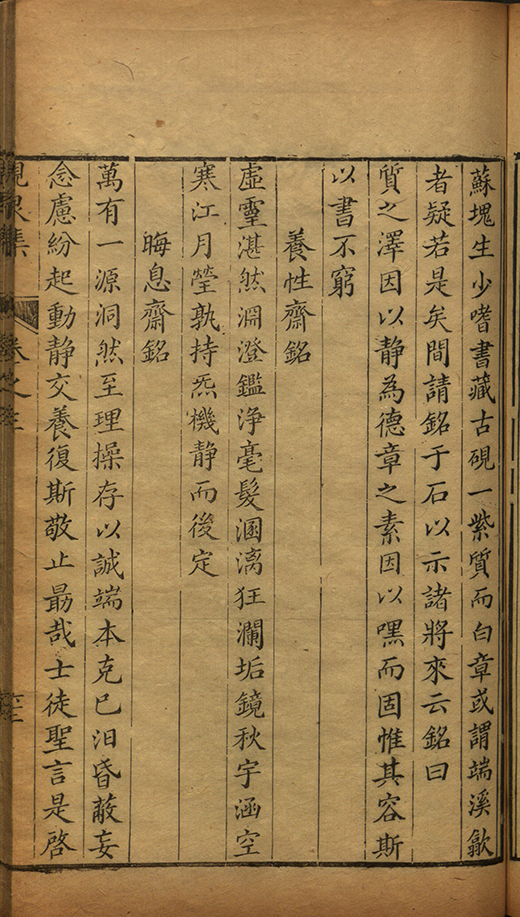 蘇塊生少嗜書藏古硯一紫質而白章或謂端溪歙
者疑若是矣間請銘于石以示諸將來云銘曰
質之澤因以静為德章之素因以嘿而固惟其容斯
以書不窮
養性齋銘
虛靈湛然淵澄鑑浄毫髮溷漓狂瀾垢鏡秋宇涵空
寒江月瑩孰持炁機静而後定
晦息齋銘
萬有一源洞然至理操存以誠端本克己汩昏蔽妄
念慮紛起動静交養復斯敬止勗哉士徒聖言是啓
峴泉集
卷之